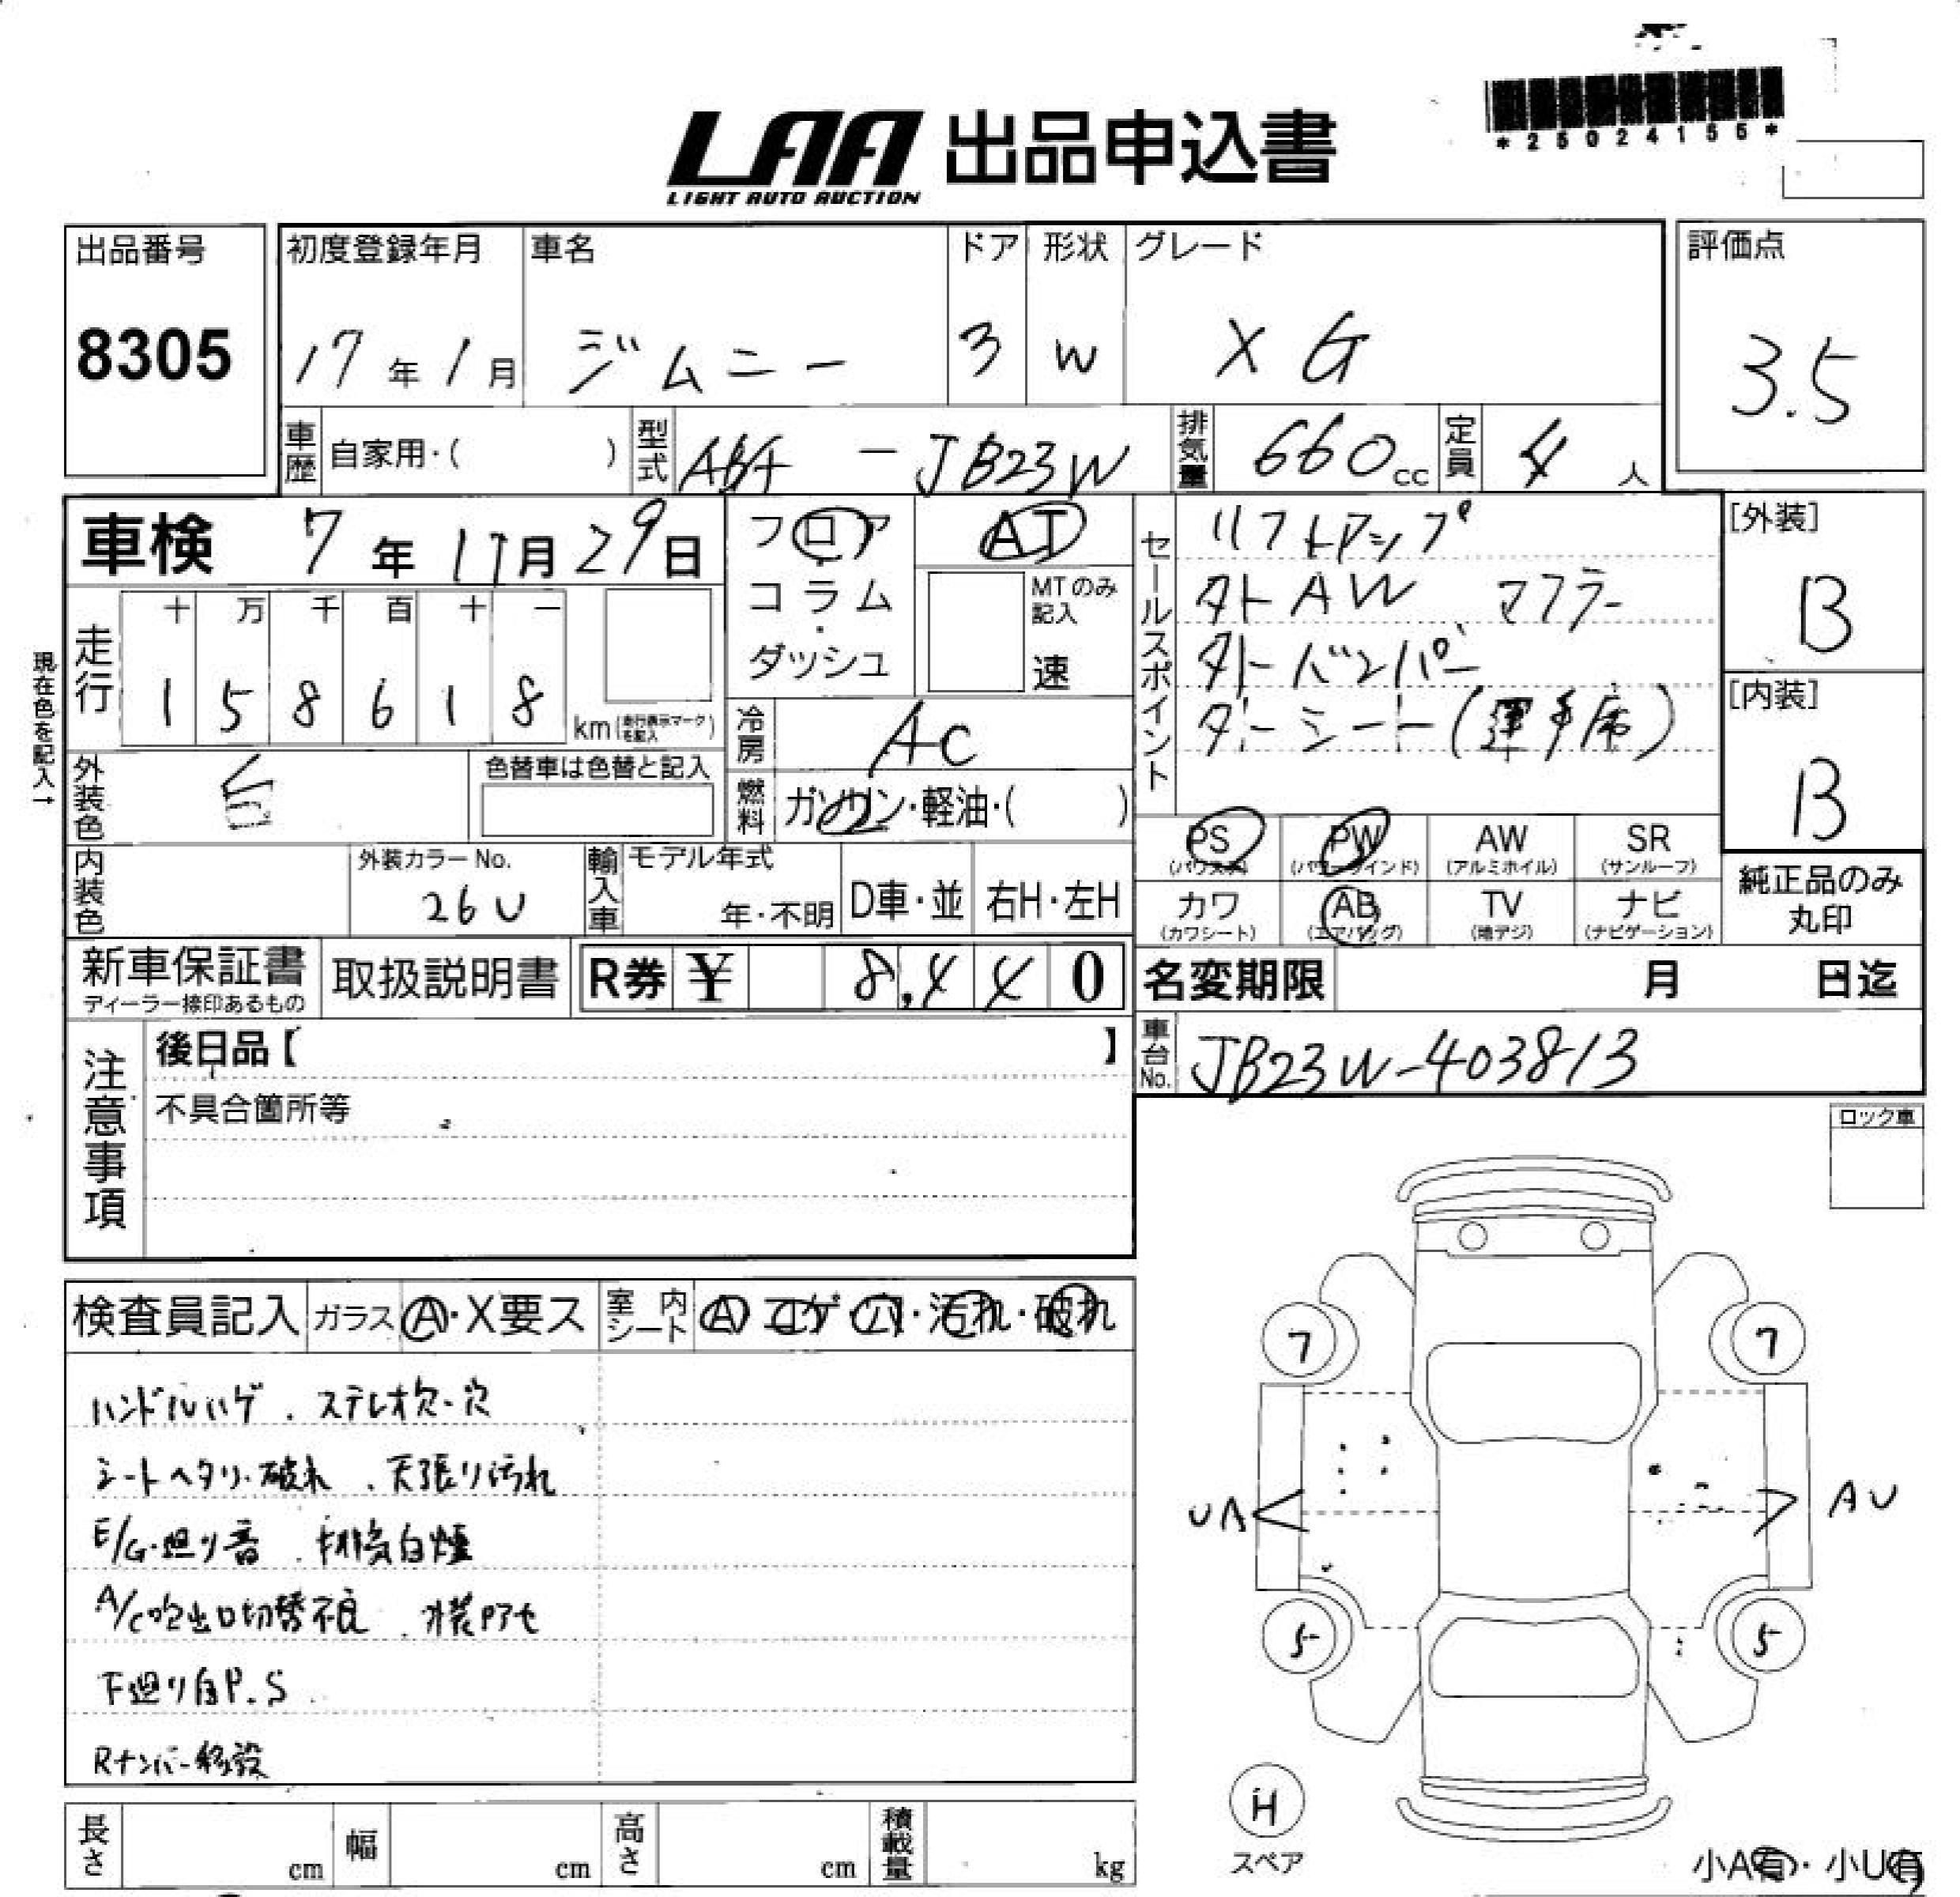 *25024155*
LAA 出品申込書
LIGHT AUTO AUCTION
出品番号 初度登録年月 車名 ドア 形状 グレード 評価点
8305 17年1月 ジムニー 3 W XG 3.5
車歴 自家用・( ) 型式 ABA-JB23W 排気量 660cc 定員 4人
車検 7年11月29日
フロア・コラム・ダッシュ
AT
MTのみ記入
速
セールスポイント
リフトアップ
外AW マフラー
外バンパー
外シート(運手席)
[外装]
B
[内装]
B
現在色を記入→
走行 十 万 千 百 十 一
1 5 8 6 1 8 km(走行表示マークを記入)
冷房 AC
外装色 白 色替車は色替と記入
燃料 ガソリン・軽油・( )
PS (パワステ) PW (パワーウインド) AW (アルミホイル) SR (サンルーフ)
カワ (カワシート) AB (エアバッグ) TV (地デジ) ナビ (ナビゲーション)
純正品のみ丸印
内装色 外装カラーNo. 26U 輸入車 モデル年式 年・不明 D車・並 右H・左H
新車保証書 ディーラー捺印あるもの 取扱説明書 R券 ¥ 8,440 名変期限 月 日迄
注意事項
後日品【 】
不具合箇所等
車台No. JB23W-403813
ロック車
検査員記入 ガラス A・X要ス 室内シート A・コゲ・穴・汚れ・破れ
ハンドルハゲ. ステレオ欠・穴
シートヘタリ・破れ. 天張り汚れ
E/G・廻り音. 排気白煙
A/C吹出口切替不良. 外装Pアセ
下廻り自P.S
Rナンバー移設
7 7
UA AU
5 5
H
スペア
小A有・小U有
長さ cm 幅 cm 高さ cm 積載量 kg